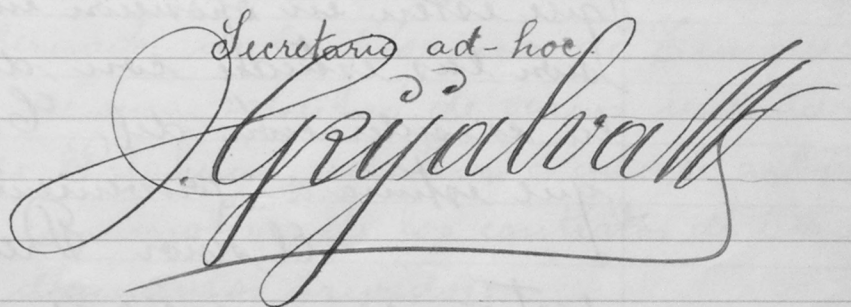 Secretario ad-hoc.
J. Grijalva